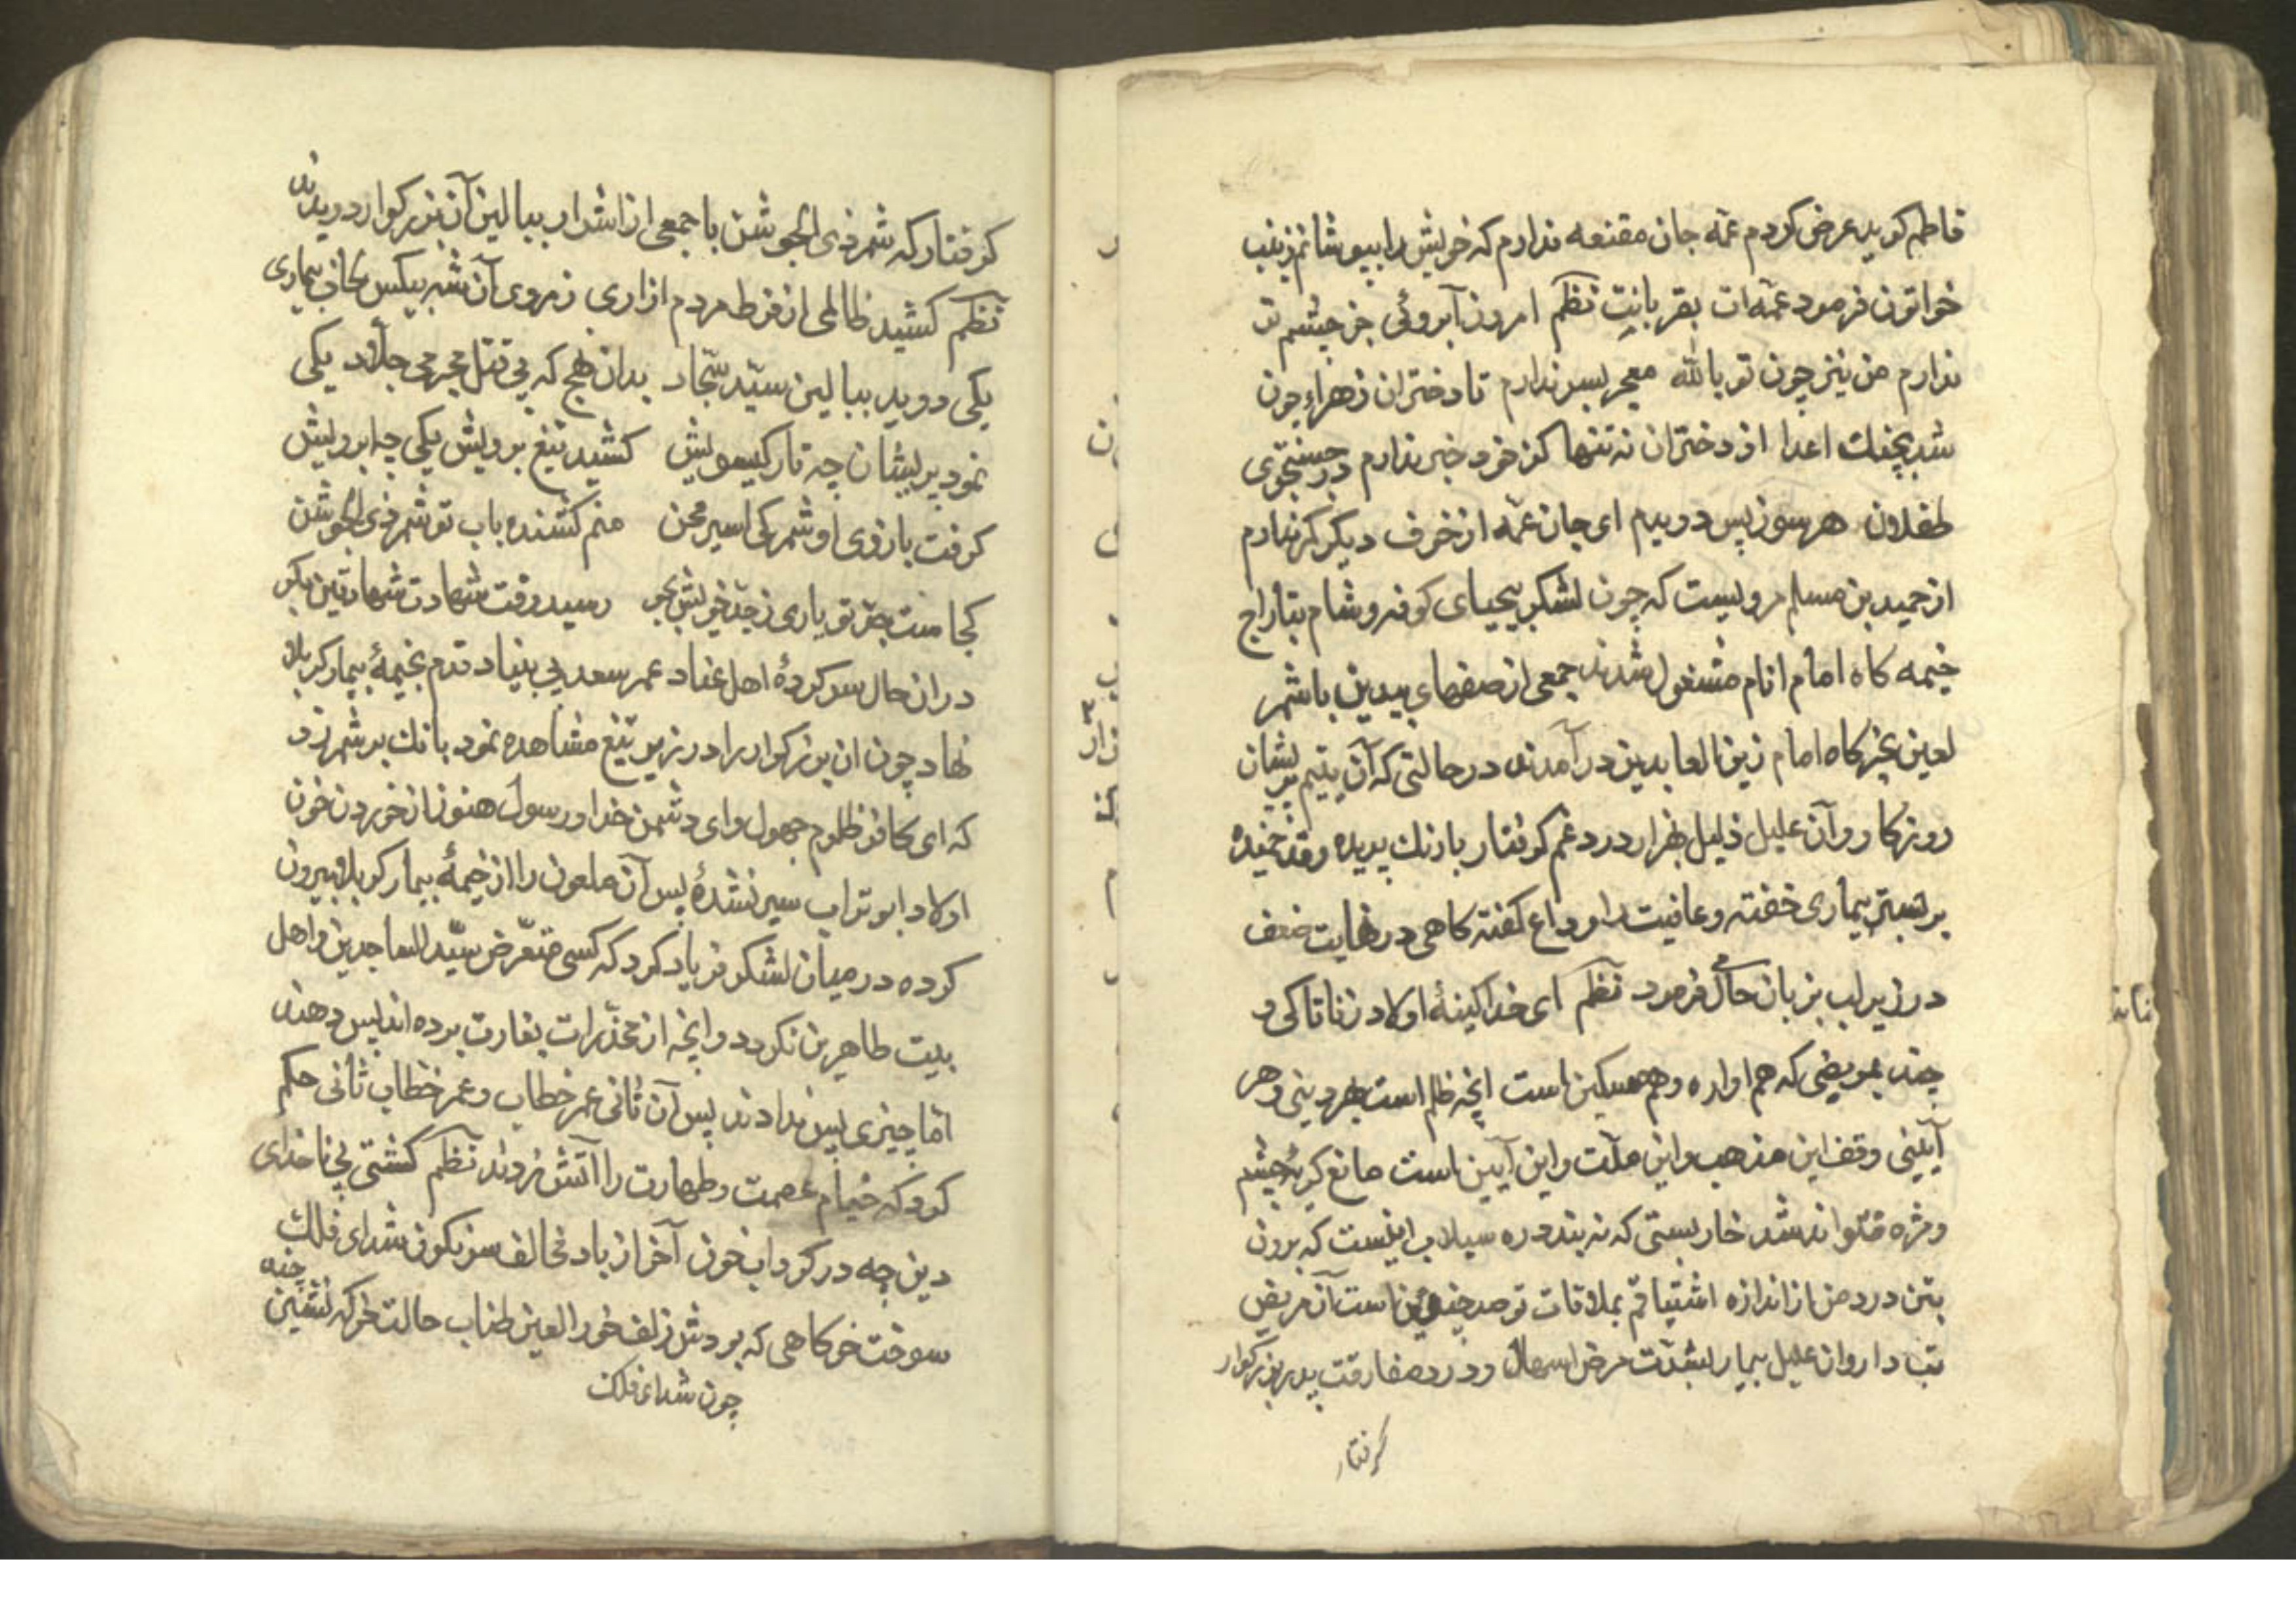 فاطمه کوید عرض کردم عمّه جان مقنعه ندارم که خویش را بپوشانم زینب
خواتون فرمود عمّه‌ات بقربانت نظم امروز آبروئی جز چشم تر
ندارم من نیز چون تو بالله معجر بسر ندارم تا دختران زهراء چون
شد بچنك اعدا از دختران نه تنها کز خود خبر ندارم در جستجوی
طفلان هر سو ز بس دویدم ای جان عمّه از خوف دیکر کز ندارم
از حمید بن مسلم مرویست که چون لشکر بیحیای کوفه و شام بتاراج
خیمه کاه امام انام مشغول شدند جمعی از صفهای بیدین با شمر
لعین بخرکاه امام زین العابدین در آمدند در حالتی که آن یتیم پریشان
روزکار و آن علیل ذلیل بهزار درد و غم کرفتار با رنك پریده و قد خمیده
بر بستر بیماری خفته و عافیت را وداع کفته کاهی در نهایت ضعف
در زیر لب بزبان حال فرمود نظم ای خدا کینهٔ اولاد زنا تا کی و
چند بمریضی که هم اواره و هم مسکین است انچه ظلم است بهر دینی و هر
آیینی وقف این مذهب و این ملّت و این آیین است مانع کریهٔ چشم
و مژه نتواند شد خار بستی که نه بندد ره سیلاب اینست که برون
بتن درد من از اندازه اشتیاقم بملاقات تو صد چندین است آن مریض
تب دار و ان علیل بیمار بشدّت مرض اسهال و درد مفارقت پدر بزرکوار
کرفتار
کرفتار که شمر ذی الجوشن با جمعی از اشرار ببالین آن بزرکوار دویدند
نظم کشید ظالمی از فرط مردم ازاری ز روی آن شه بیکس لحاف بیماری
یکی دوید ببالین سیّد سجّاد بدان نهج که پی قتل مجرمی جلّاد یکی
نمود پریشان چه تار کیسویش کشید تیغ برویش یکی چه ابرویش
کرفت بازوی او شمر کی اسیر محن منم کشنده باب تو شمر ذی الجوشن
کجاست جدّ تو یاری ز جدّ خویش بجو رسید وقت شهادت شهادتین بکو
در ان حال سر کردهٔ اهل عناد عمر سعد بی بنیاد قدم بخیمهٔ بیمار کربلا
نهاد چون ان بزرکوار را در زیر تیغ مشاهده نمود بانك بر شمر زد
که ای کافر ظلوم جهول و ای دشمن خدا و رسول هنوز از خوردن خون
اولاد ابو تراب سیر نشدهٔ پس آن ملعون را از خیمهٔ بیمار کربلا بیرون
کرده در میان لشکر فریاد کرد که کسی متعرّض سیّد الساجدین و اهل
بیت طاهرین نکردد و انچه از مخدّرات بغارت برده اند پس دهند
امّا چیزی پس ندادند پس آن ثانی عمر خطاب و عمر خطاب ثانی حکم
کرد که خیام عصمت و طهارت را آتش زدند نظم کشتی بی ناخدای
دین چه در کرداب خون آخر از باد مخالف سرنکون شد ای فلك
سوخت خرکاهی که بودش زلف حور العین طناب حالت خرکه نشین
چون شد ای فلك